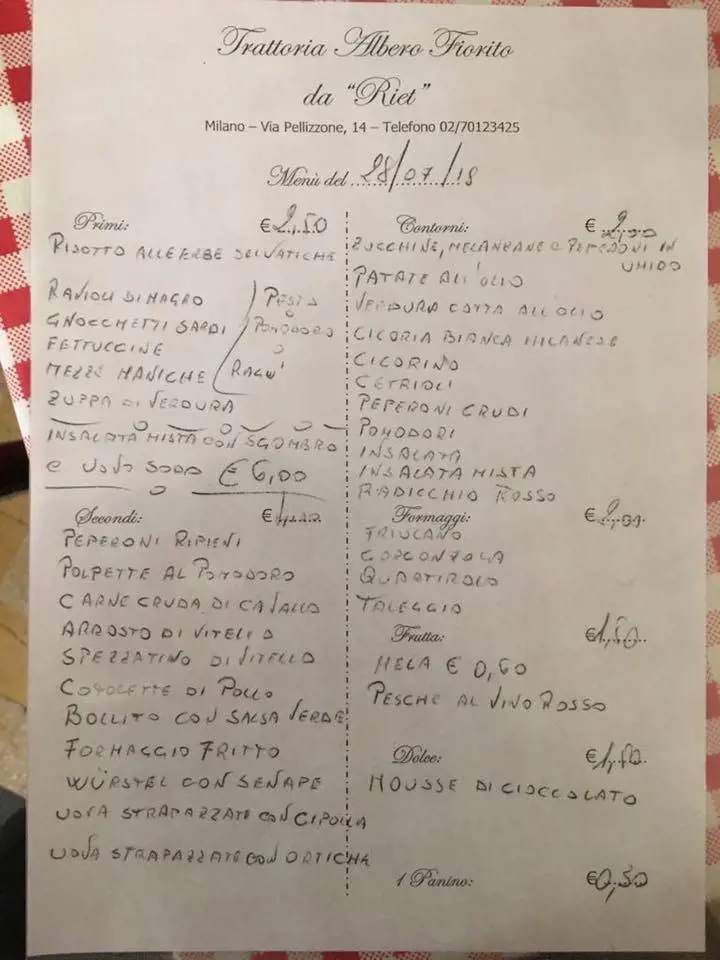 Trattoria Albero Fiorito
da "Riet"
Milano – Via Pellizzone, 14 – Telefono 02/70123425
Menù del 28/07/18
Primi: €2,50
RISOTTO ALLE ERBE SELVATICHE
RAVIOLI DI MAGRO
GNOCCHETTI SARDI
FETTUCCINE
MEZZE MANICHE
PESTO
O
POMODORO
O
RAGU'
ZUPPA DI VERDURA
INSALATA MISTA CON SGOMBRO
e UOVO SODO €6,00
Secondi: €
PEPERONI RIPIENI
POLPETTE AL POMODORO
CARNE CRUDA DI CAVALLO
ARROSTO DI VITELLO
SPEZZATINO DI VITELLO
COTOLETTE DI POLLO
BOLLITO CON SALSA VERDE
FORMAGGIO FRITTO
WÜRSTEL CON SENAPE
UOVA STRAPAZZATE CON CIPOLLA
UOVA STRAPAZZATE CON ORTICHE
Contorni: €2,00
ZUCCHINE, MELANZANE e PEPERONI IN
UMIDO
PATATE ALL'OLIO
VERDURA COTTA ALL'OLIO
CICORIA BIANCA MILANESE
CICORINO
CETRIOLI
PEPERONI CRUDI
POMODORI
INSALATA
INSALATA MISTA
RADICCHIO ROSSO
Formaggi: €2,00
FRIULANO
GORGONZOLA
QUARTIROLO
TALEGGIO
Frutta: €1,50
MELA € 0,60
PESCHE AL VINO ROSSO
Dolce: €
MOUSSE DI CIOCCOLATO
1 Panino: €0,50